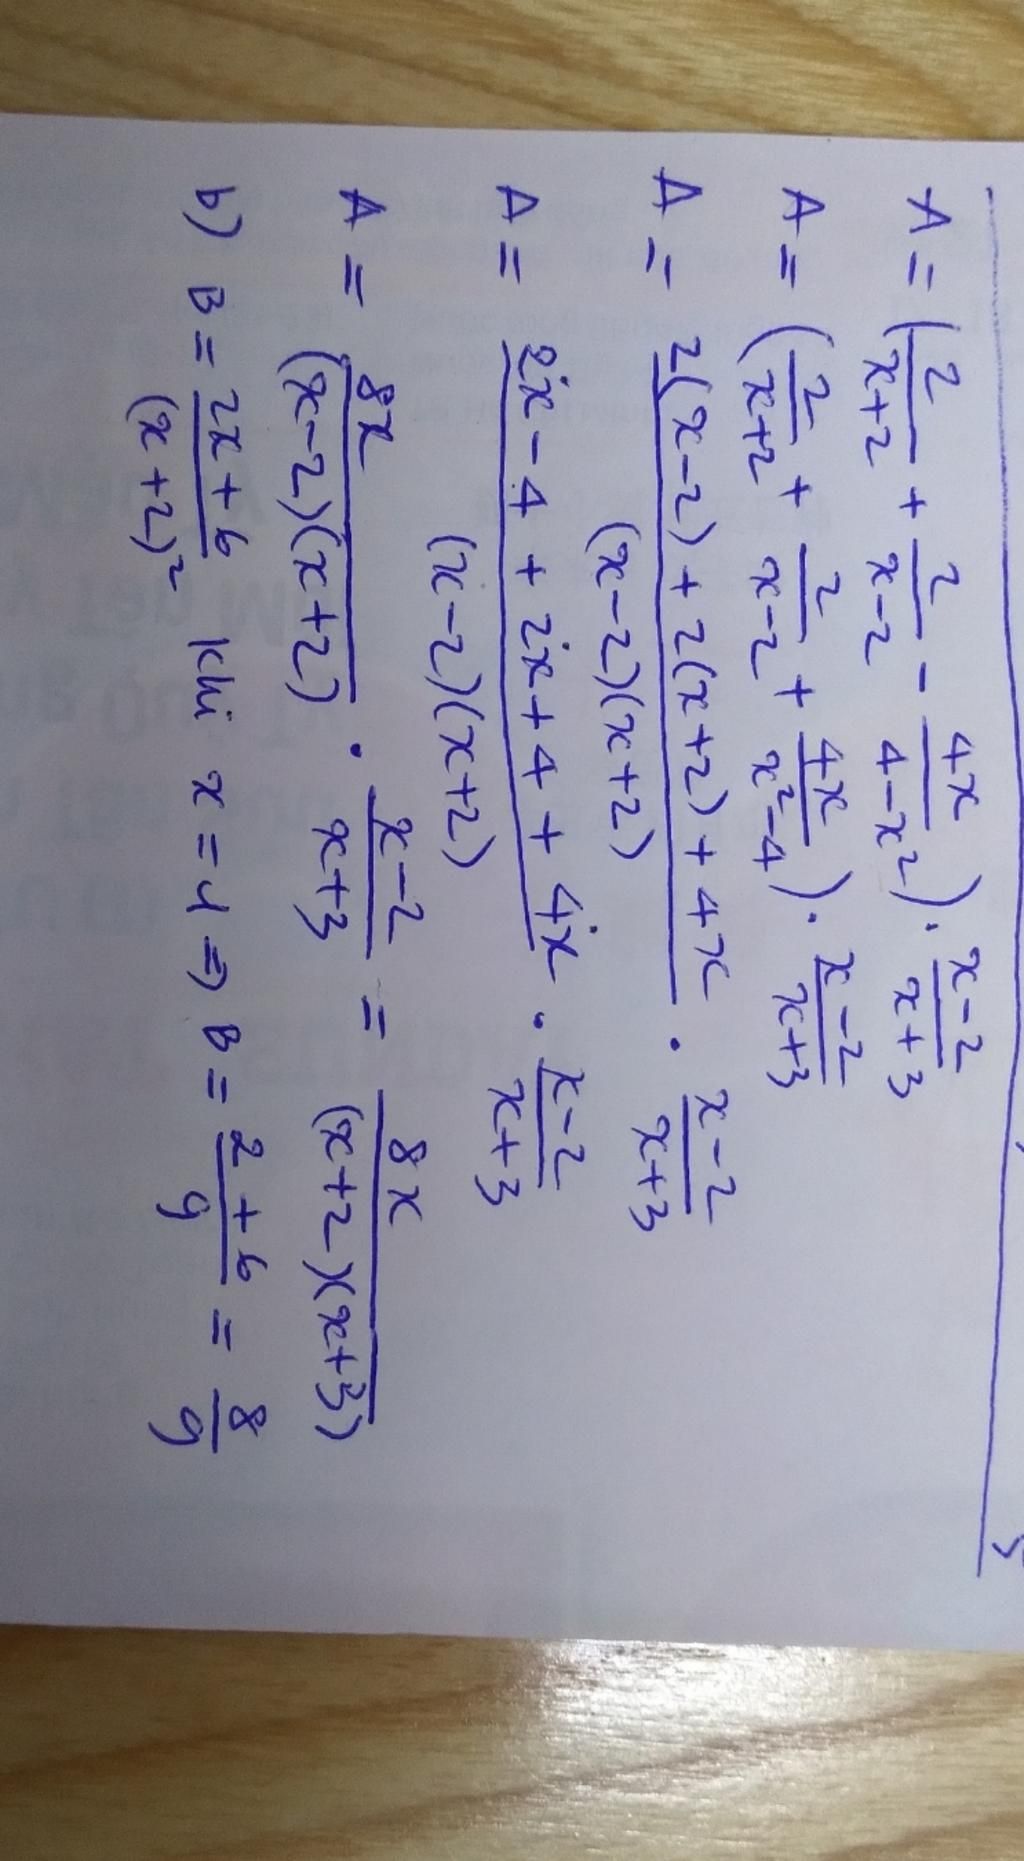 A = (2/(x+2) + 2/(x-2) - 4x/(4-x²)) . (x-2)/(x+3)
A = (2/(x+2) + 2/(x-2) + 4x/(x²-4)) . (x-2)/(x+3)
A = (2(x-2) + 2(x+2) + 4x)/((x-2)(x+2)) . (x-2)/(x+3)
A = (2x-4 + 2x+4 + 4x)/((x-2)(x+2)) . (x-2)/(x+3)
A = 8x/((x-2)(x+2)) . (x-2)/(x+3) = 8x/((x+2)(x+3))
b) B = (2x+6)/(x+2)² khi x = 1 => B = (2+6)/9 = 8/9